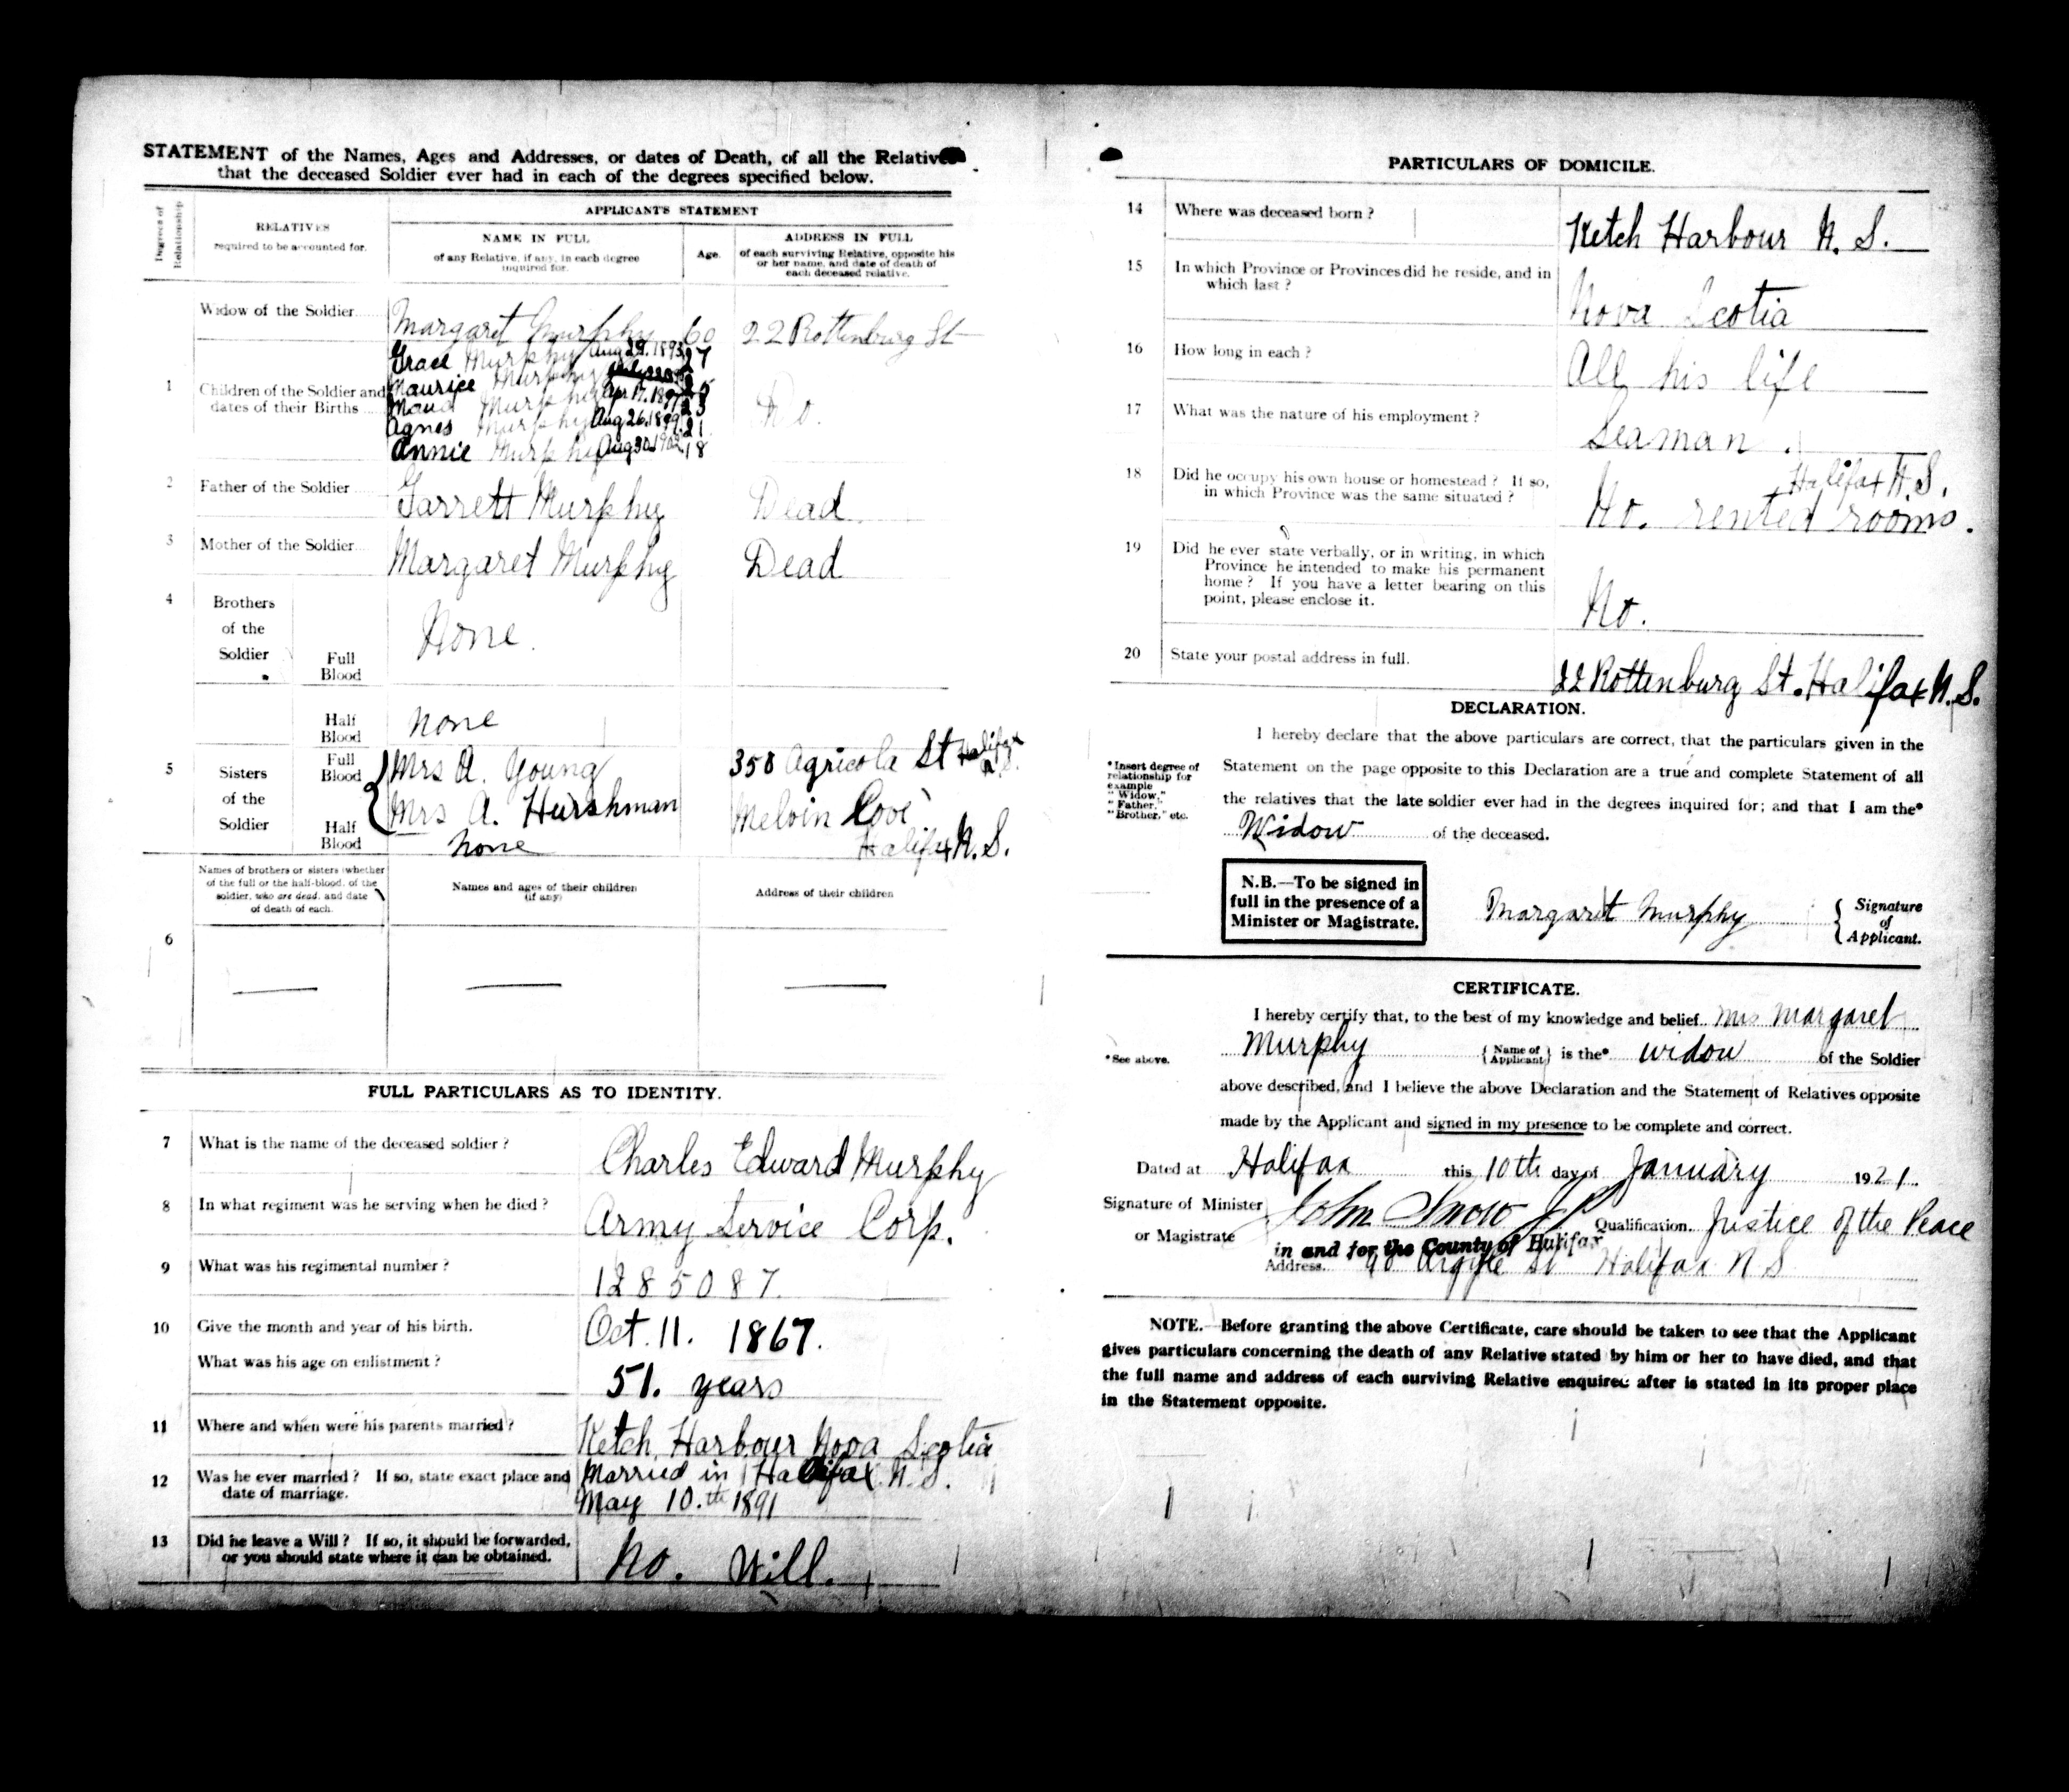 STATEMENT of the Names, Ages and Addresses, or dates of Death, of all the Relatives
that the deceased Soldier ever had in each of the degrees specified below.
Degrees of Relationship
RELATIVES
required to be accounted for.
APPLICANT'S STATEMENT
NAME IN FULL
of any Relative, if any, in each degree
inquired for.
Age.
ADDRESS IN FULL
of each surviving Relative, opposite his
or her name, and date of death of
each deceased relative.
Widow of the Soldier
Margaret Murphy 60 22 Rottenburg St
1 Children of the Soldier and
dates of their Births
Grace Murphy Aug 29. 1893. 27
Maurice Murphy 25
Maud Murphy Apr 17. 1897 23
Agnes Murphy Aug 26. 1899. 21
Annie Murphy Aug 30. 1902. 18
Do.
2 Father of the Soldier Garrett Murphy Dead
3 Mother of the Soldier Margaret Murphy Dead
4 Brothers
of the
Soldier
Full
Blood
None.
Half
Blood
none
5 Sisters
of the
Soldier
Full
Blood
Mrs A. Young 358 Agricola St Halifax
N.S.
Mrs A. Hurshman Melvin Cove
Half
Blood
none
Halifax N.S.
Names of brothers or sisters (whether
of the full or the half-blood, of the
soldier, who are dead, and date
of death of each.
Names and ages of their children
(if any)
Address of their children
6
FULL PARTICULARS AS TO IDENTITY.
7 What is the name of the deceased soldier ? Charles Edward Murphy
8 In what regiment was he serving when he died ? Army Service Corp.
9 What was his regimental number ? 1285087.
10 Give the month and year of his birth. Oct. 11. 1867.
What was his age on enlistment ? 51. years
11 Where and when were his parents married ? Ketch Harbour Nova Scotia
12 Was he ever married ? If so, state exact place and
date of marriage.
Married in Halifax. N.S.
May 10.th 1891
13 Did he leave a Will ? If so, it should be forwarded,
or you should state where it can be obtained.
No. Will.
PARTICULARS OF DOMICILE.
14 Where was deceased born ? Ketch Harbour N. S.
15 In which Province or Provinces did he reside, and in
which last ?
Nova Scotia
16 How long in each ? All his life
17 What was the nature of his employment ? Seaman.
18 Did he occupy his own house or homestead ? If so,
in which Province was the same situated ?
Halifax N.S.
No. rented rooms.
19 Did he ever state verbally, or in writing, in which
Province he intended to make his permanent
home ? If you have a letter bearing on this
point, please enclose it.
No.
20 State your postal address in full. 22 Rottenburg St. Halifax N.S.
DECLARATION.
I hereby declare that the above particulars are correct, that the particulars given in the
Statement on the page opposite to this Declaration are a true and complete Statement of all
the relatives that the late soldier ever had in the degrees inquired for; and that I am the*
Widow of the deceased.
*Insert degree of
relationship for
example
"Widow,"
"Father,"
"Brother," etc.
N.B.—To be signed in
full in the presence of a
Minister or Magistrate.
Margaret Murphy
Signature
of
Applicant.
CERTIFICATE.
I hereby certify that, to the best of my knowledge and belief Mrs Margaret
*See above.
Murphy {Name of Applicant} is the* widow of the Soldier
above described, and I believe the above Declaration and the Statement of Relatives opposite
made by the Applicant and signed in my presence to be complete and correct.
Dated at Halifax this 10th day of January 1921.
Signature of Minister
or Magistrate
John Snow JP Qualification. Justice of the Peace
in and for the County of Halifax
Address. 90 Argyle St Halifax N S
NOTE.—Before granting the above Certificate, care should be taken to see that the Applicant
gives particulars concerning the death of any Relative stated by him or her to have died, and that
the full name and address of each surviving Relative enquired after is stated in its proper place
in the Statement opposite.